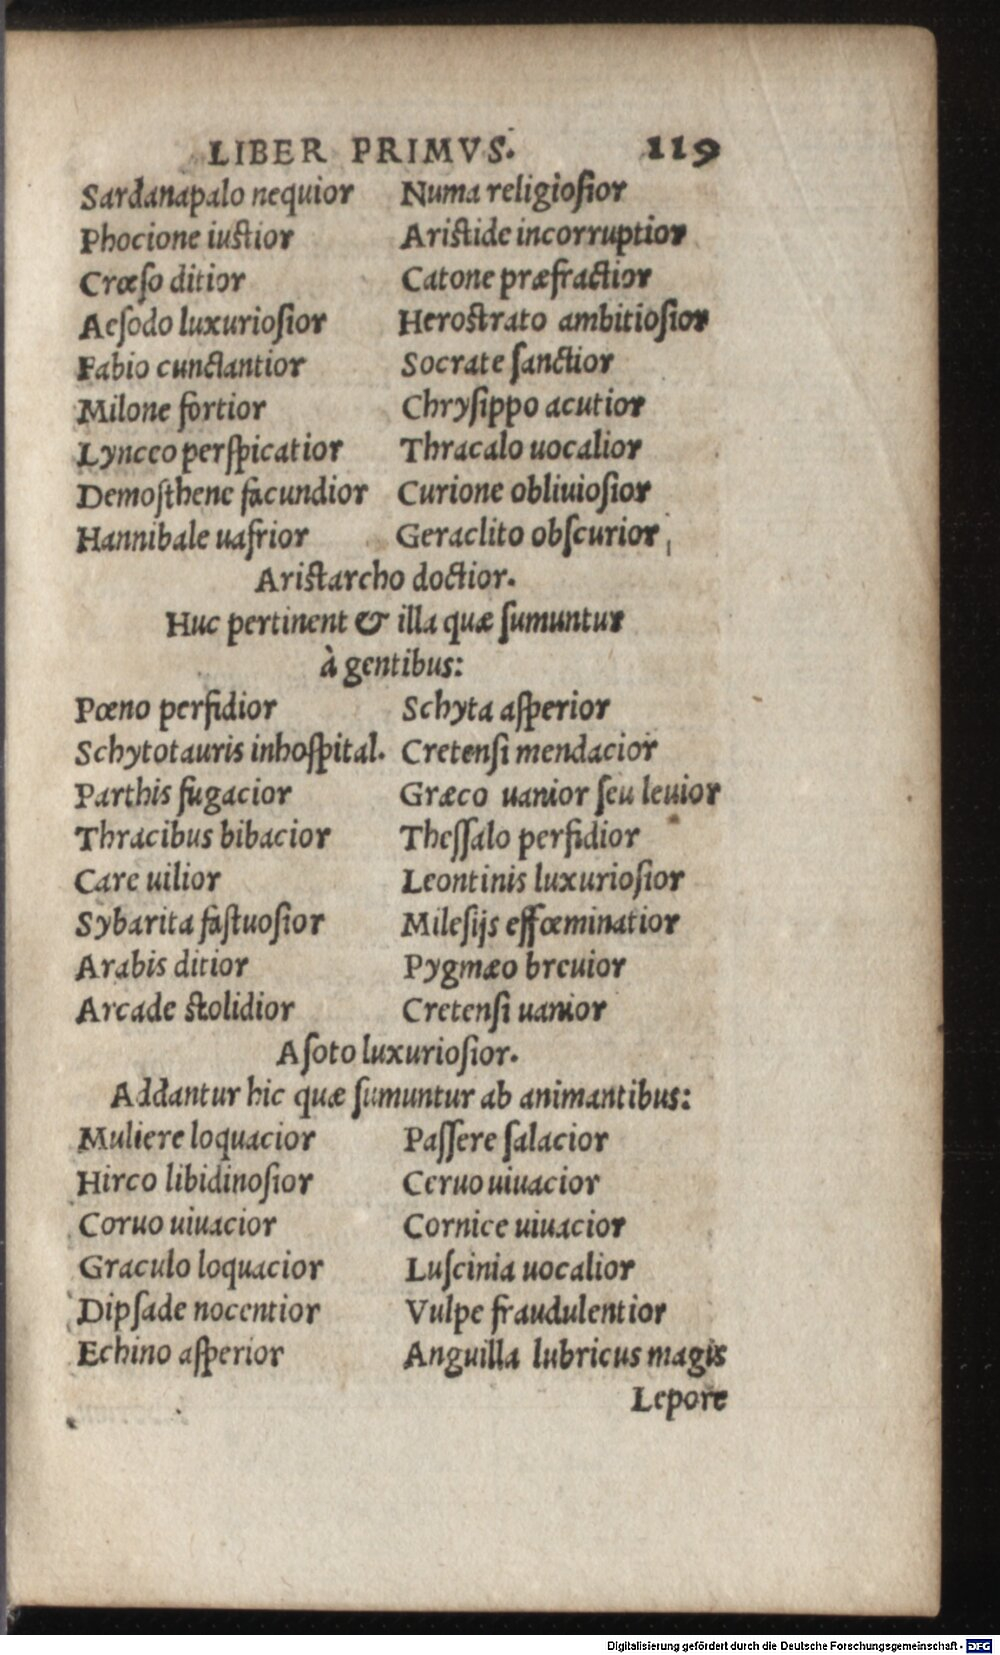 LIBER PRIMVS. 119
Sardanapalo nequior Numa religiosior
Phocione iustior Aristide incorruptior
Crœso ditior Catone præfractior
Aesodo luxuriosior Herostrato ambitiosior
Fabio cunctantior Socrate sanctior
Milone fortior Chrysippo acutior
Lynceo perspicatior Thracalo uocalior
Demosthene facundior Curione obliuiosior
Hannibale uafrior Geraclito obscurior
Aristarcho doctior.
Huc pertinent & illa quæ sumuntur
à gentibus:
Pœno perfidior Schyta asperior
Schytotauris inhospital. Cretensi mendacior
Parthis fugacior Græco uanior seu leuior
Thracibus bibacior Thessalo perfidior
Care uilior Leontinis luxuriosior
Sybarita fastuosior Milesijs effœminatior
Arabis ditior Pygmæo breuior
Arcade stolidior Cretensi uanior
Asoto luxuriosior.
Addantur hic quæ sumuntur ab animantibus:
Muliere loquacior Passere salacior
Hirco libidinosior Ceruo uiuacior
Coruo uiuacior Cornice uiuacior
Graculo loquacior Luscinia uocalior
Dipsade nocentior Vulpe fraudulentior
Echino asperior Anguilla lubricus magis
Lepore
Digitalisierung gefördert durch die Deutsche Forschungsgemeinschaft - DFG